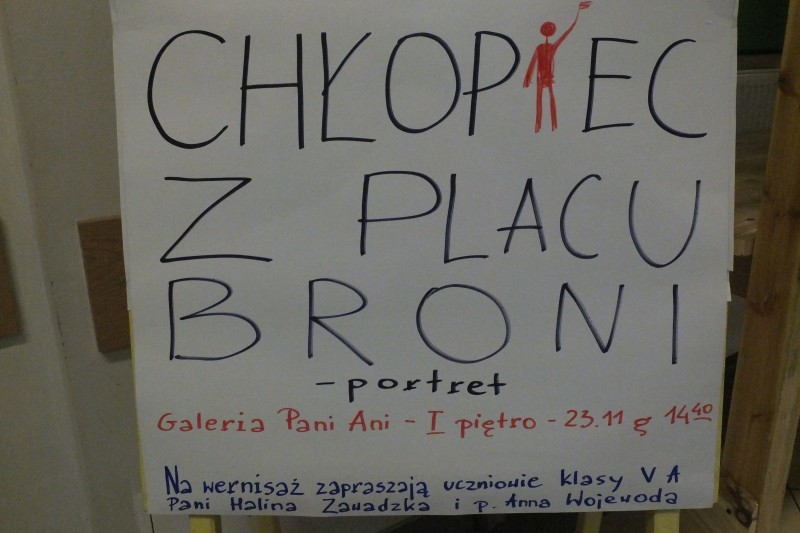 CHŁOPIEC
Z PLACU
BRONI
- portret
Galeria Pani Ani - I piętro - 23.11 g 14⁴⁰
Na wernisaż zapraszają uczniowie klasy V A
Pani Halina Zawadzka i p. Anna Wojewoda